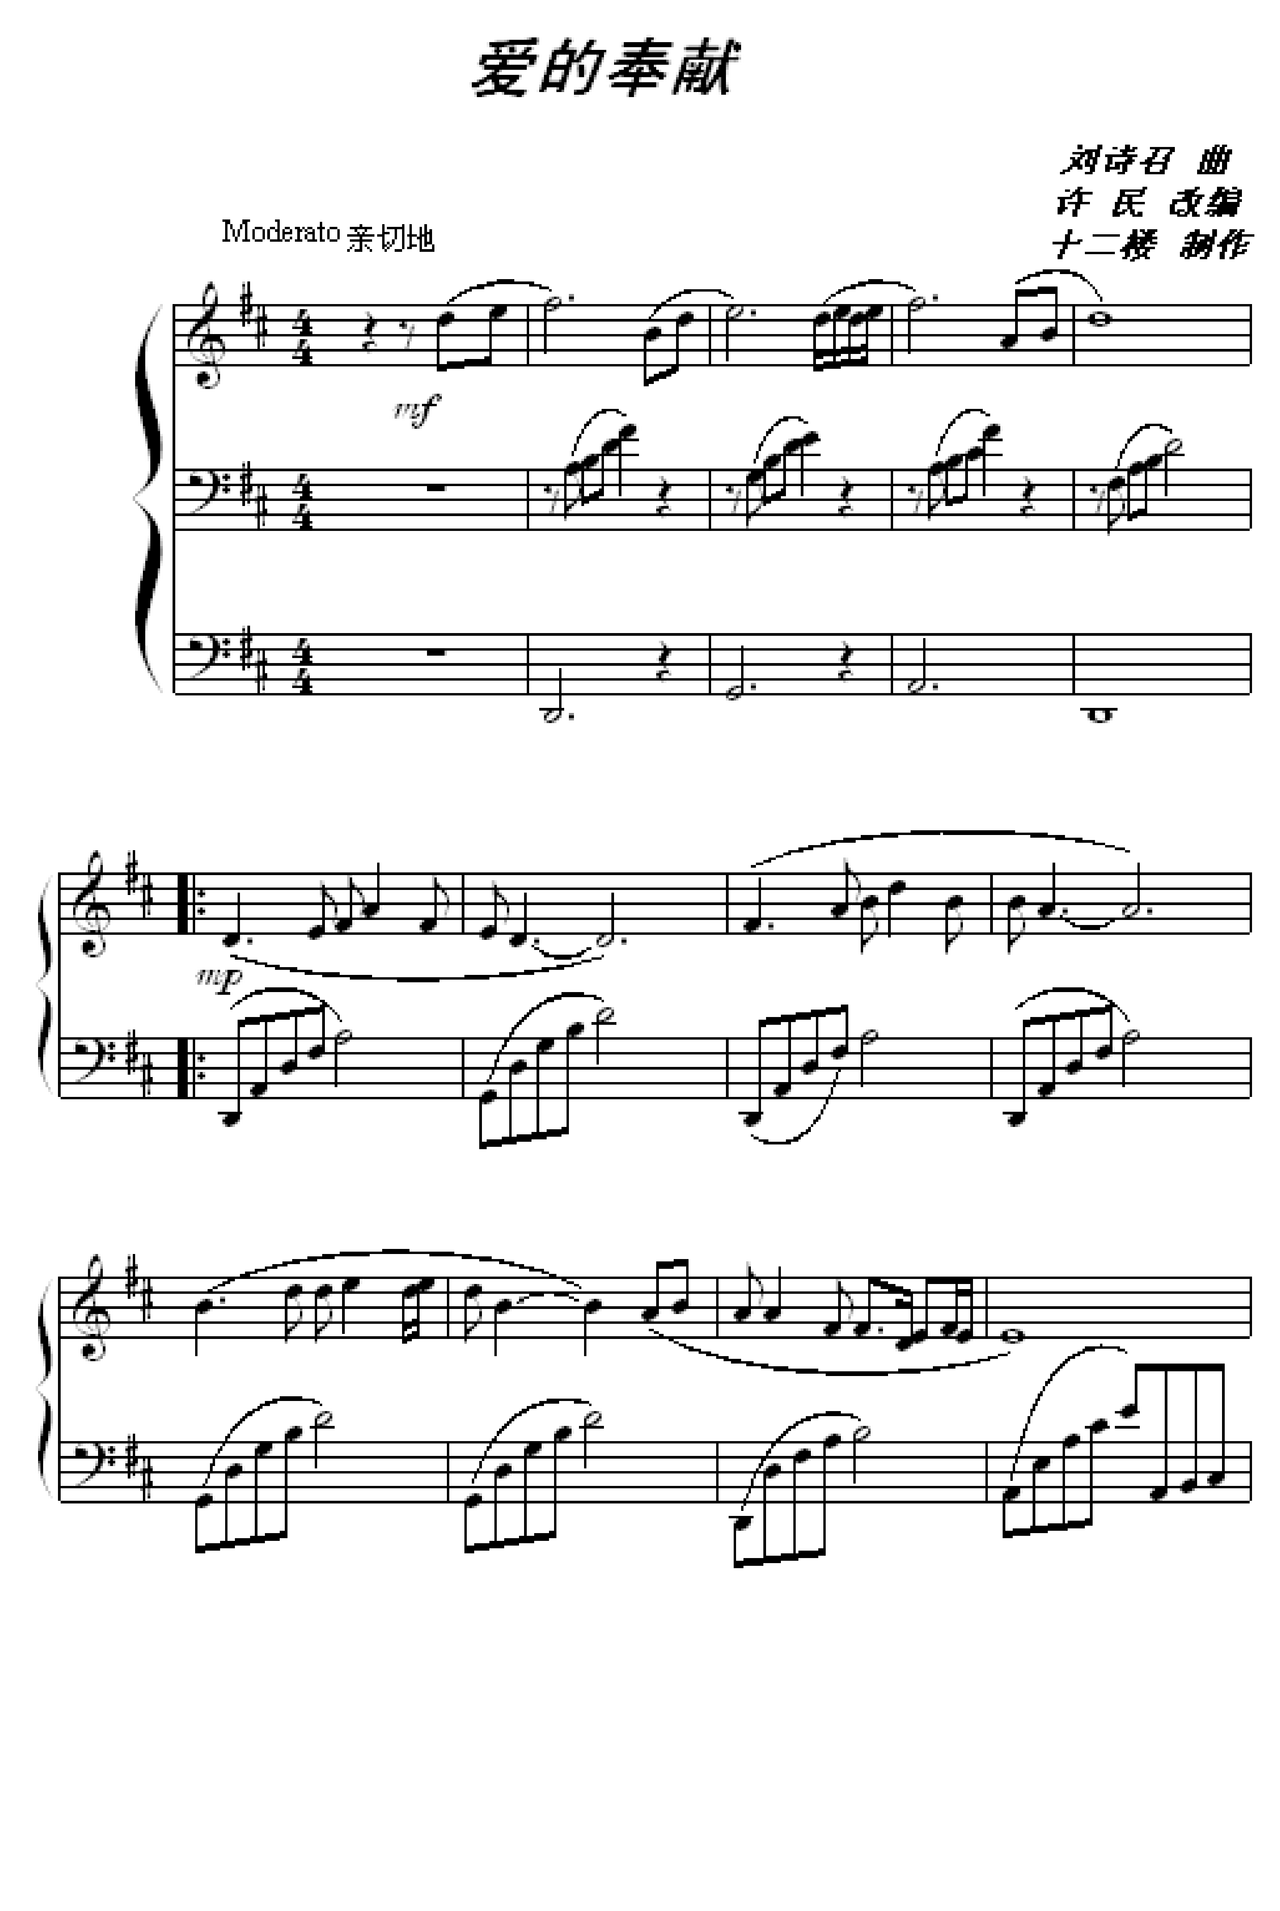 爱的奉献
刘诗召 曲
许 民 改编
十二楼 制作
Moderato 亲切地
mf
mp